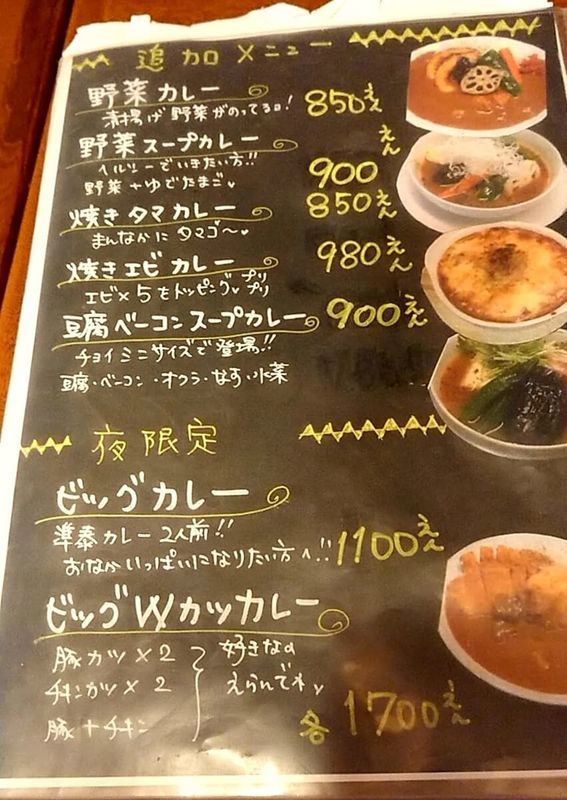 追加メニュー
野菜カレー 850えん
素揚げ野菜がのってるョ!
野菜スープカレー 900えん
ヘルシーでいきたい方!!
野菜+ゆでたまご
焼きタマカレー 850えん
まんなかにタマゴ〜
焼きエビカレー 980えん
エビ×5をトッピング プリプリ
豆腐ベーコンスープカレー 900えん
チョイミニサイズで登場!!
豆腐・ベーコン・オクラ・なす・水菜
夜限定
ビッグカレー
準泰カレー2人前!!
おなかいっぱいになりたい方へ!! 1100えん
ビッグWカツカレー
豚カツ×2
チキンカツ×2
豚+チキン
好きなの
えらんでネ
各1700えん